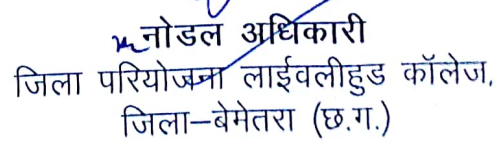 नोडल अधिकारी
जिला परियोजना लाईवलीहुड कॉलेज,
जिला–बेमेतरा (छ.ग.)